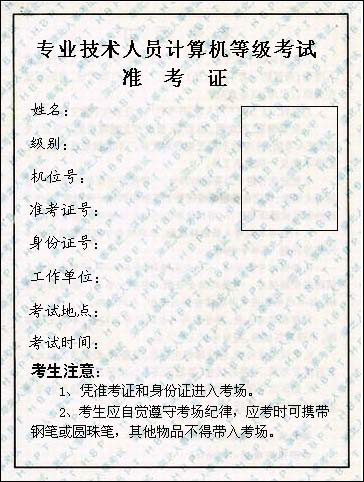 专业技术人员计算机等级考试
准 考 证
姓名：
级别：
机位号：
准考证号：
身份证号：
工作单位：
考试地点：
考试时间：
考生注意：
1、凭准考证和身份证进入考场。
2、考生应自觉遵守考场纪律，应考时可携带
钢笔或圆珠笔，其他物品不得带入考场。